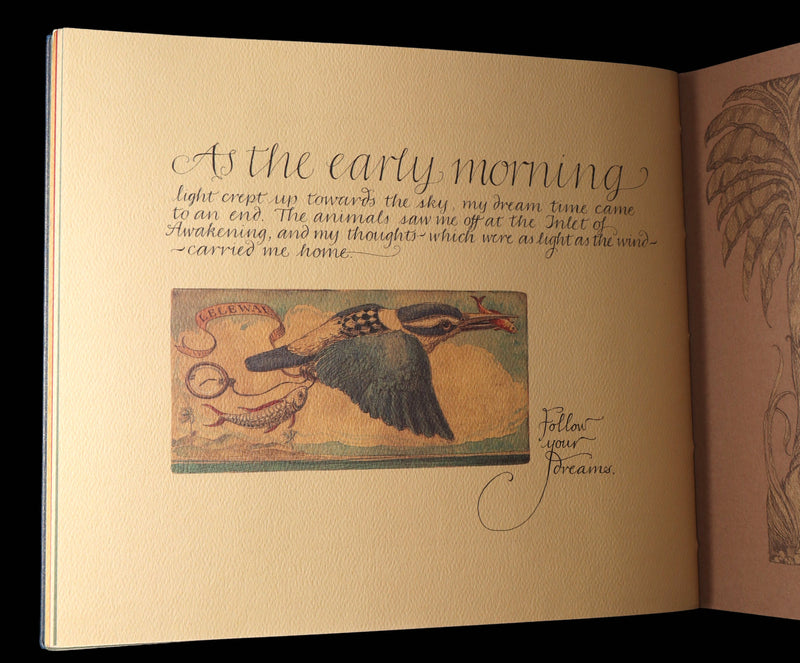 As the early morning
light crept up towards the sky, my dream time came
to an end. The animals saw me off at the Inlet of
Awakening, and my thoughts~which were as light as the wind~
~carried me home.
LELEWAL
Follow
your
dreams.